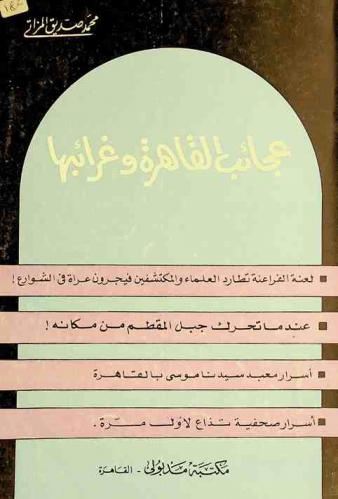 محمد صديق المزاتي
عجائب القاهرة وغرائبها
لعنة الفراعنة تطارد العلماء والمكتشفين فيجرون عراة في الشوارع !
عندما تحرك جبل المقطم من مكانه !
أسرار معبد سيدنا موسى بالقاهرة
أسرار صحفية تذاع لأول مرة .
مكتبة مدبولي - القاهرة